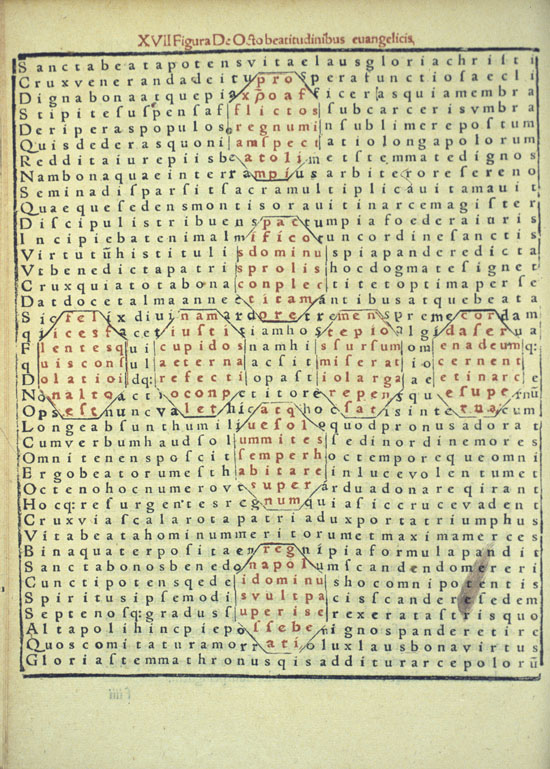 XVII Figura De Octo beatitudinibus euangelicis,
Sanctabeatapotensvitaelausgloriachriſti
Cruxvenerandadeituproſperafunctioſaecli
Dignabonaatquepiaxp̄oafficeraſquiamembra
Stipiteſuſpenſafflictosſubcarceriſvmbra
Deriperaſpopuloſregnuminſublimerepoſtum
Quiſdederaſquoniamſpectatiolongapolorum
Redditaiurepiiſbeatolimetſtemmatedignoſ
Nambonaquaeinterrampiusarbiteroreſereno
Seminadiſparſitſacramultiplicauitamauit
Quaequeſedenſmontiſorauitinarcemagiſter
Diſcipuliſtribuenſpactumpiafoederaiuris
Incipiebatenimalmificoruncordineſanctis
Virtutūhiſtituliſdominuſpiapanderedicta
Vtbenedictapatriſprolishocdogmateſignet
Cruxquiatotabonaconplectitetoptimaperſe
Datdocetalmaannectitamantibuſatquebeata
Sicfelixdiuinamardoretremenſpremecordam
qiiceſtacetiuſtitiamhoſtepioalgidaſerua
Flenteſquicupidosnamhiſſurſumomenadeumq:
quiſconſulaeternaacſitmiſeratioomcernent
Dolatioidq:refectiopaſtiolargaaeetinarce
Nonaltoactioconpetitorerepenſqueſupernū
Opseſtnuncvalethicatqhocſatiſinteruacum
Longeabſunthumiliueſoloquodpronuſadorat
CumverbumhaudſolummitesſedinordinemoreS
Omnitenenſpoſcitſemperhoctemporequeomni
Ergobeatorumeſthabitareinlucevolentumet
Octenohocnumerovtſuperarduadonareqirant
Hocq:reſurgenteſregnumquiaſiccrucevadent
Cruxviaſcalarotapatriaduxportatriumphus
Vitabeatahominummeritorumetmaximamerces
Binaquaterpoſitaenregnipiaformulapandit
Sanctabonoſbenedonapolumſcandendomereri
Cunctipotenſqedeidominuſhocomnipotentis
Spirituſipſemodiſvultpaciſcandereſedem
Septenoſq:graduſſuperiſſerexerataſtriſquo
Altapolihincpiepoſſebenignoſpanderetirc
Quoſcomitaturamorratioluxlauſbonavirtuſ
Gloriaſtemmathronuſqiſadditurarcepolorū